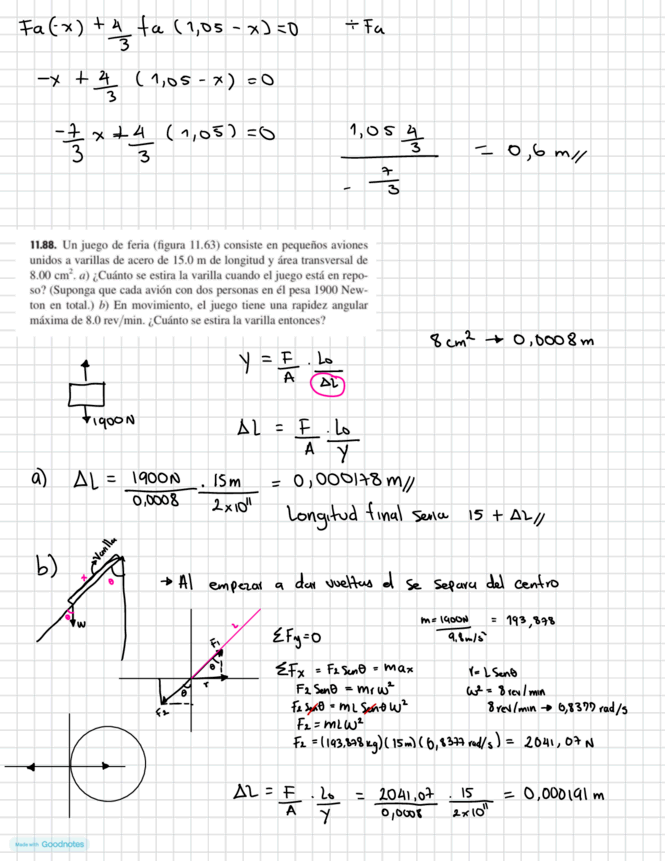 Fa(-x) + 4/3 fa (1,05 - x) = 0 ÷ Fa
-x + 4/3 (1,05 - x) = 0
-7/3 x + 4/3 (1,05) = 0 1,05 4/3 / - 7/3 = 0,6 m//
11.88. Un juego de feria (figura 11.63) consiste en pequeños aviones
unidos a varillas de acero de 15.0 m de longitud y área transversal de
8.00 cm². a) ¿Cuánto se estira la varilla cuando el juego está en repo-
so? (Suponga que cada avión con dos personas en él pesa 1900 New-
ton en total.) b) En movimiento, el juego tiene una rapidez angular
máxima de 8.0 rev/min. ¿Cuánto se estira la varilla entonces?
8 cm² → 0,0008 m
Y = F/A · Lo/ΔL
1900N
ΔL = F/A · Lo/Y
a) ΔL = 1900N/0,0008 · 15m/2x10¹¹ = 0,000178 m//
Longitud final seria 15 + ΔL//
b)
Varilla
θ
θ
W
→ Al empezar a dar vueltas el se separa del centro
L
F1
θ
r
θ
F2
ΣFy = 0
m = 1900N/9,8m/s² = 193,878
ΣFx = F2 Senθ = max
r = L Senθ
F2 Senθ = mrω²
ω² = 8 rev/min
F2 Senθ = mL Senθ ω²
8 rev/min → 0,8377 rad/s
F2 = mLω²
F2 = (193,878 kg)(15m)(0,8377 rad/s) = 2041,07 N
ΔL = F/A · Lo/Y = 2041,07/0,0008 · 15/2x10¹¹ = 0,000191 m
Made with Goodnotes